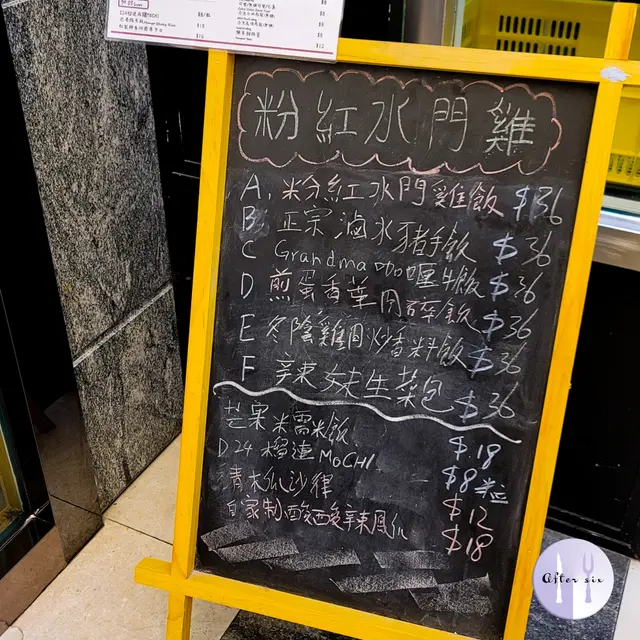 粉紅水門雞
A. 粉紅水門雞飯 $36
B 正宗滷水豬手飯 $36
C Grandma咖喱牛飯 $36
D 煎蛋香葉肉碎飯 $36
E 冬陰雞肉炒香料飯 $36
F 辣妹生菜包 $36
芒果米需米飯 $18
D24 榴連 MOCHI $8粒
青木瓜沙律 $12
自家制酸酸辣鳳爪 $18
After six